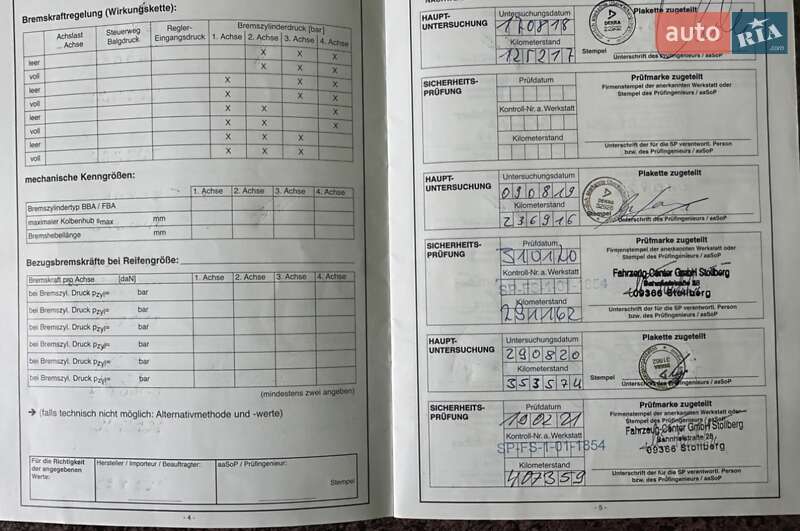 Bremskraftregelung (Wirkungskette):
Achslast ... Achse
Steuerweg Balgdruck
Regler- Eingangsdruck
Bremszylinderdruck [bar]
1. Achse 2. Achse 3. Achse 4. Achse
leer X X X
voll X X X
leer X X X
voll X X X
leer X X X
voll X X X
leer X X X
voll X X X
mechanische Kenngrößen:
1. Achse 2. Achse 3. Achse 4. Achse
Bremszylindertyp BBA / FBA
maximaler Kolbenhub smax mm
Bremshebellänge mm
Bezugsbremskräfte bei Reifengröße:
Bremskraft pro Achse [daN] 1. Achse 2. Achse 3. Achse 4. Achse
bei Bremszyl. Druck pZyl= bar
bei Bremszyl. Druck pZyl= bar
bei Bremszyl. Druck pZyl= bar
bei Bremszyl. Druck pZyl= bar
bei Bremszyl. Druck pZyl= bar
bei Bremszyl. Druck pZyl= bar
(mindestens zwei angeben)
➔ (falls technisch nicht möglich: Alternativmethode und -werte)
Für die Richtigkeit der angegebenen Werte:
Hersteller / Importeur / Beauftragter:
aaSoP / Prüfingenieur:
Stempel
- 4 -
HAUPT- UNTERSUCHUNG
Untersuchungsdatum
170818
Kilometerstand
125217
Stempel
DEKRA
Plakette zugeteilt
Unterschrift des Prüfingenieurs / aaSoP
auto RIA
.com
SICHERHEITS- PRÜFUNG
Prüfdatum
Kontroll-Nr. a. Werkstatt
Kilometerstand
Prüfmarke zugeteilt
Firmenstempel der anerkannten Werkstatt oder
Stempel des Prüfingenieurs / aaSoP
Unterschrift der für die SP verantwortl. Person
bzw. des Prüfingenieurs / aaSoP
HAUPT- UNTERSUCHUNG
Untersuchungsdatum
090819
Kilometerstand
236916
Stempel
DEKRA
Plakette zugeteilt
Unterschrift des Prüfingenieurs / aaSoP
SICHERHEITS- PRÜFUNG
Prüfdatum
310120
Kontroll-Nr. a. Werkstatt
SP-FS-1-01-1854
Kilometerstand
291162
Prüfmarke zugeteilt
Firmenstempel der anerkannten Werkstatt oder
Stempel des Prüfingenieurs / aaSoP
Fahrzeug-Center GmbH Stollberg
Bahnhofstraße 28
09366 Stollberg
Unterschrift der für die SP verantwortl. Person
bzw. des Prüfingenieurs / aaSoP
HAUPT- UNTERSUCHUNG
Untersuchungsdatum
290820
Kilometerstand
353574
Stempel
DEKRA
Plakette zugeteilt
Unterschrift des Prüfingenieurs / aaSoP
SICHERHEITS- PRÜFUNG
Prüfdatum
100221
Kontroll-Nr. a. Werkstatt
SP-FS-1-01-1854
Kilometerstand
407359
Prüfmarke zugeteilt
Firmenstempel der anerkannten Werkstatt oder
Stempel des Prüfingenieurs / aaSoP
Fahrzeug-Center GmbH Stollberg
Bahnhofstraße 28
09366 Stollberg
Unterschrift der für die SP verantwortl. Person
bzw. des Prüfingenieurs / aaSoP
- 5 -